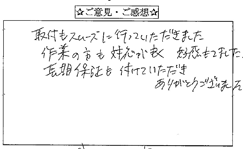 ☆ご意見・ご感想☆
取付もスムーズに行っていただきました
作業の方も対応が良く好感もてました。
長期保証も付けていただき
ありがとうございました